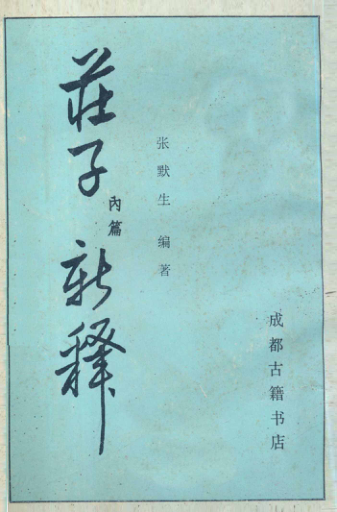 莊子新釋
內篇
张默生 编著
成都古籍书店